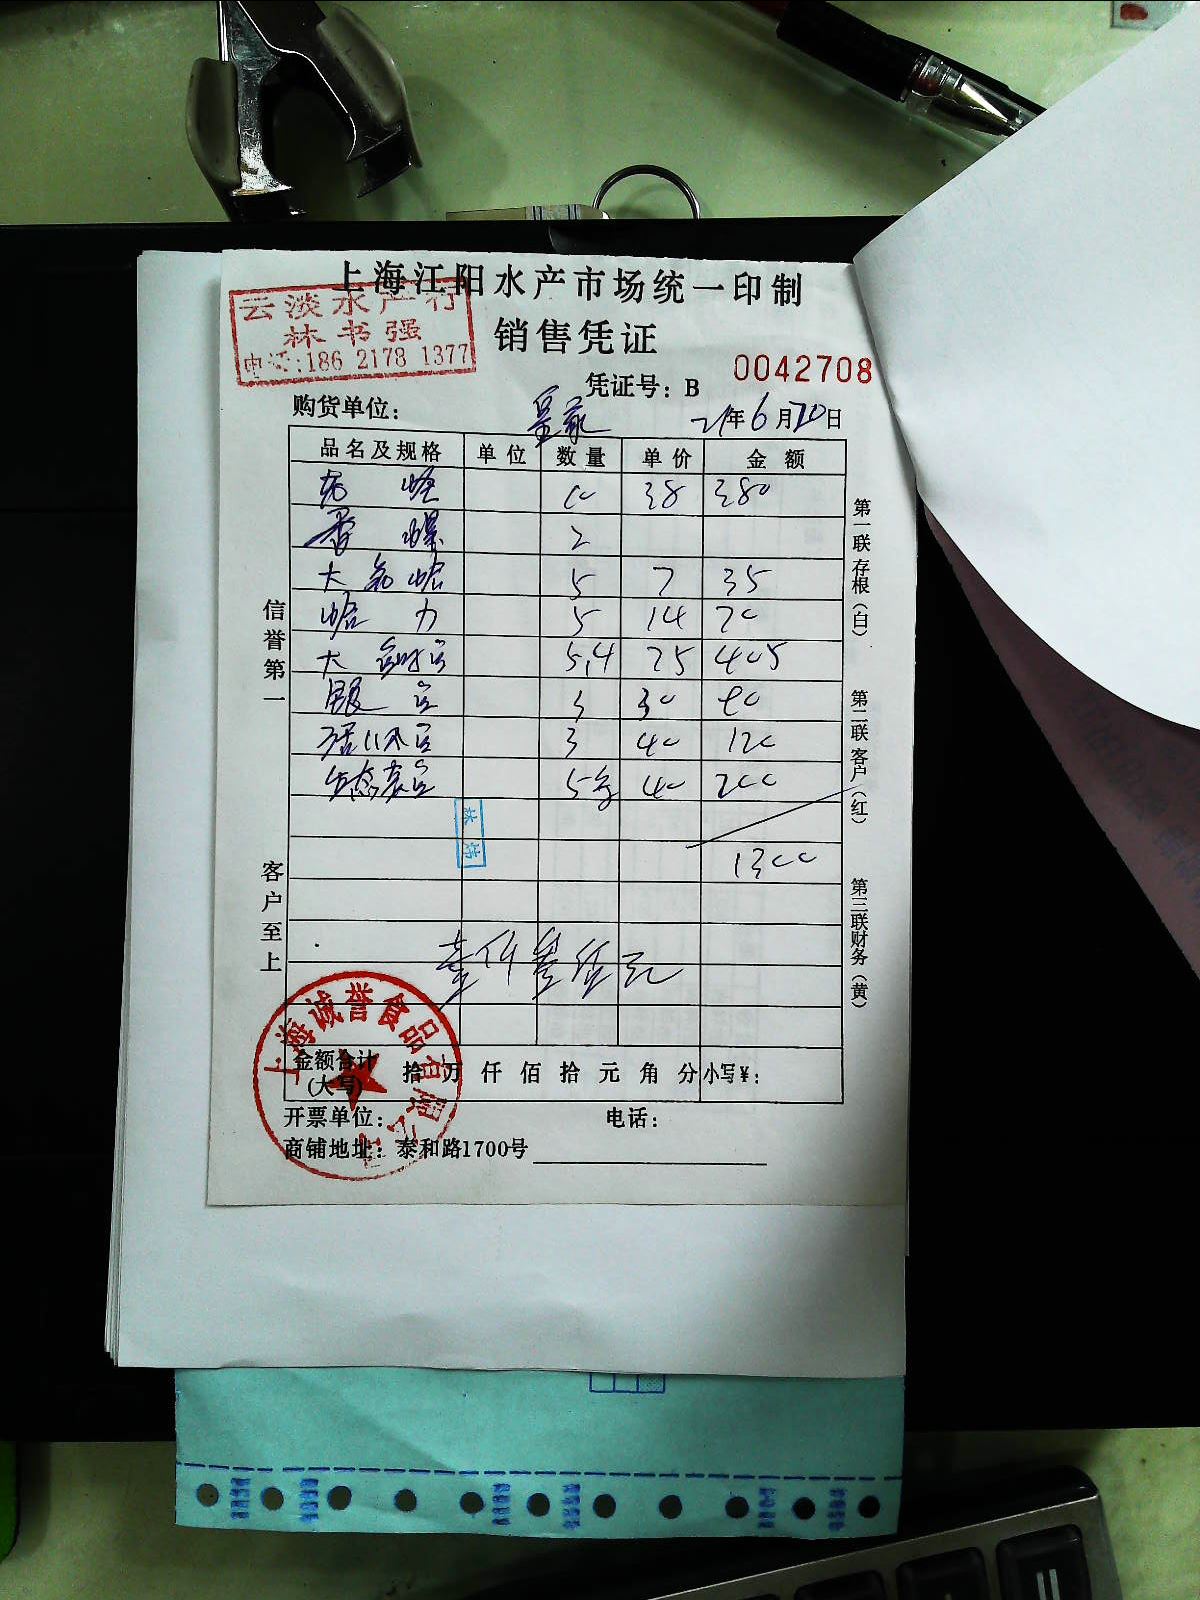 上海江阳水产市场统一印制
云淡水产行
林书强
电话:186 2178 1377
销售凭证
凭证号: B 0042708
购货单位:
21年6月20日
品名及规格 单位 数量 单价 金额
10 38 380
2
5 7 35
哈 力 5 14 70
大 5.4 75 405
3 30 90
3 40 120
生态 5 40 200
1300
壹仟叁佰元
信誉第一
客户至上
第一联存根(白)
第二联客户(红)
第三联财务(黄)
上海诚誉食品有限公司
金额合计
(大写) 拾 万 仟 佰 拾 元 角 分 小写¥:
开票单位: 电话:
商铺地址: 泰和路1700号